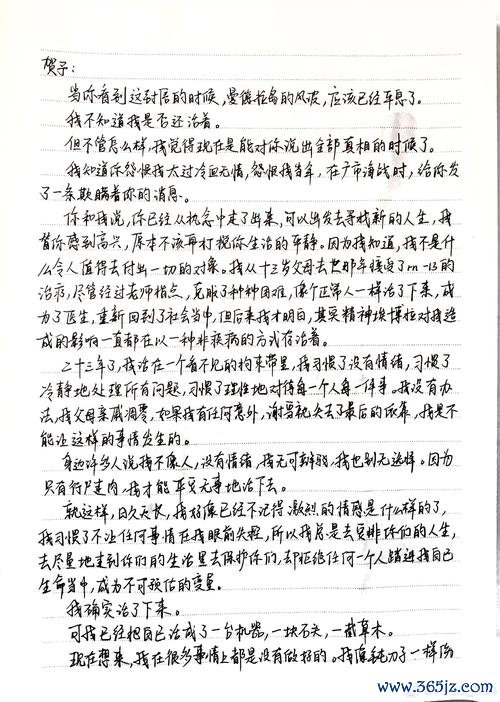 贺子：
当你看到这封信的时候，曼德拉岛的风波，应该已经平息了。
我不知道我是否还活着。
但不管怎么样，我觉得现在是能对你说出全部真相的时候了。
我知道你怨恨我太过冷血无情，怨恨我当年，在广市海战时，给你发
了一条欺瞒着你的消息。
你和我说，你已经从执念中走了出来，可以出发去寻找新的人生，我
替你感到高兴，原本不该再打搅你生活的平静。因为我知道，我不是什
么令人值得去付出一切的对象。我从十三岁父母去世那年接受了m-13的
治疗，尽管经过老师指点，克服了种种困难，像个正常人一样活了下来，成
为了医生，重新回到了社会当中，但后来我才明白，其实精神埃博拉对我造
成的影响一直都在以一种非疾病的方式存活着。
二十三年了，我活在一个看不见的拘束带里，我习惯了没有情绪，习惯了
冷静地处理所有问题，习惯了理性地对待每一个人每一件事。我没有办
法，我父母亲戚凋零，如果我有任何意外，谢雪就失去了最后的依靠，我是不
能让这样的事情发生的。
身边许多人说我不像人，没有情绪，我无可辩驳，我也别无选择。因为
只有行尸走肉，我才能平安无事地活下去。
就这样，日久天长，我好像已经不记得激烈的情感是什么样的了，
我习惯了不让任何事情在我眼前失控，所以我总是去安排你们的人生，
去尽量地走到你们的生活里去保护你们，却拒绝任何一个人踏进我自己
生命当中，成为不可预估的变量。
我确实活了下来。
可我已经把自己活成了一台机器，一块石头，一截草木。
现在想来，我在很多事情上都是没有做好的。我像钝刀子一样伤
www.365jz.com